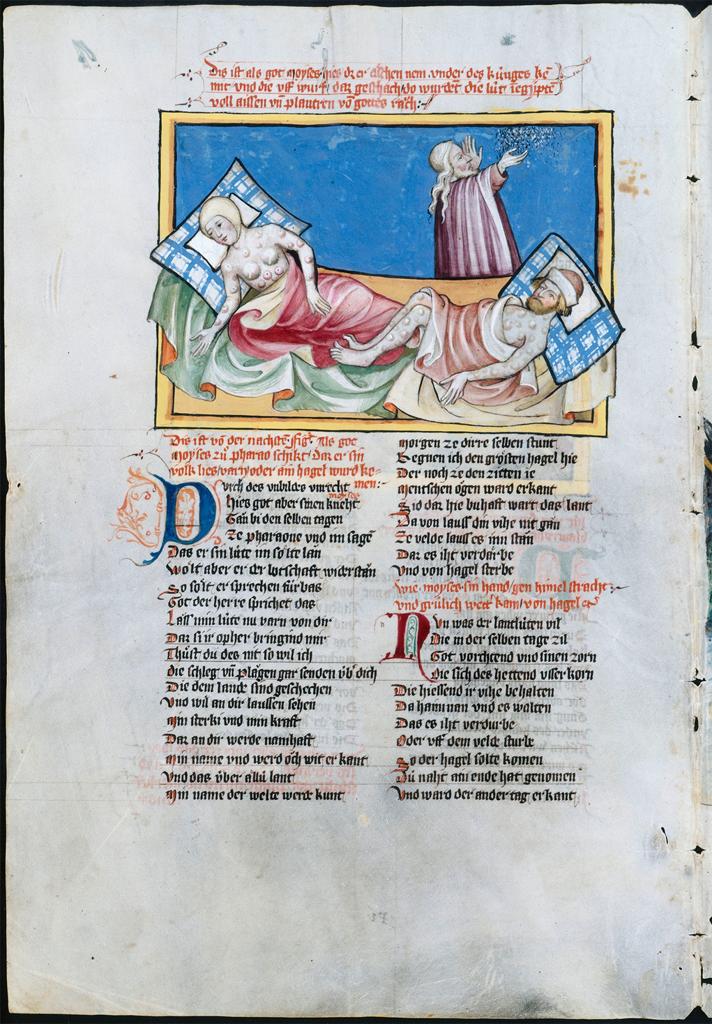 Dis ist als got moyses hies dz er eschen nem vnder des kúnges ke
mit vnd die vff wurf daz geschach do wurdent die lút
voll aissen vn plautren vō gottes rach
Dis ist vō der nachste fig als got
moyses zů pharao schikt daz er sin
volk lies varn oder ain hagel wurd ke
men
Durch des vnbildes vnrecht
moyses
Hies got aber sinen kneht
Gān bi den selben tagen
Ze pharaone vnd im sagē
Das er sin lúte im solte lān
Wolt aber er der botschaft widerstān
So solt er sprechen fúrbas
Got der herre sprichet das
Lass min lúte nu varn von dir
Daz si ir opher bringind mir
Thůst du des nit so wil ich
Die schleg vn plāgen gar senden úb dich
Die dem lande sind geschechen
Vnd wil an dir laussen sehen
Min sterki vnd min kraft
Daz an dir werde namhaft
Min name vnd werd och wit erkant
Vnd das úber allú lant
Min name der welte werd kunt
Morgen ze dirre selben stunt
Regnen ich den grósten hagel hie
Der noch ze den ziten ie
Mentschen ógen ward erkant
Sid daz hie buhaft wart das lant
Da von lauss din vihe nit gān
Ze velde lauss es inn stān
Daz es iht verdar be
Vnd von hagel sterbe
Wie moyses sin hand gen himel stracht
vnd grúlich wett kam von hagel
Nvn was der lantlúten vil
Die in der selben tage zil
Got vorchtend vnd sinen zorn
Die sich des hettend vsser korn
Die hiessend ir vihe behalten
Da haiman vnd es walten
Das es iht verdurbe
Oder vff dem velde sturbe
So der hagel solte komen
Zů naht ain ende hat genomen
Vnd ward der ander tag erkant